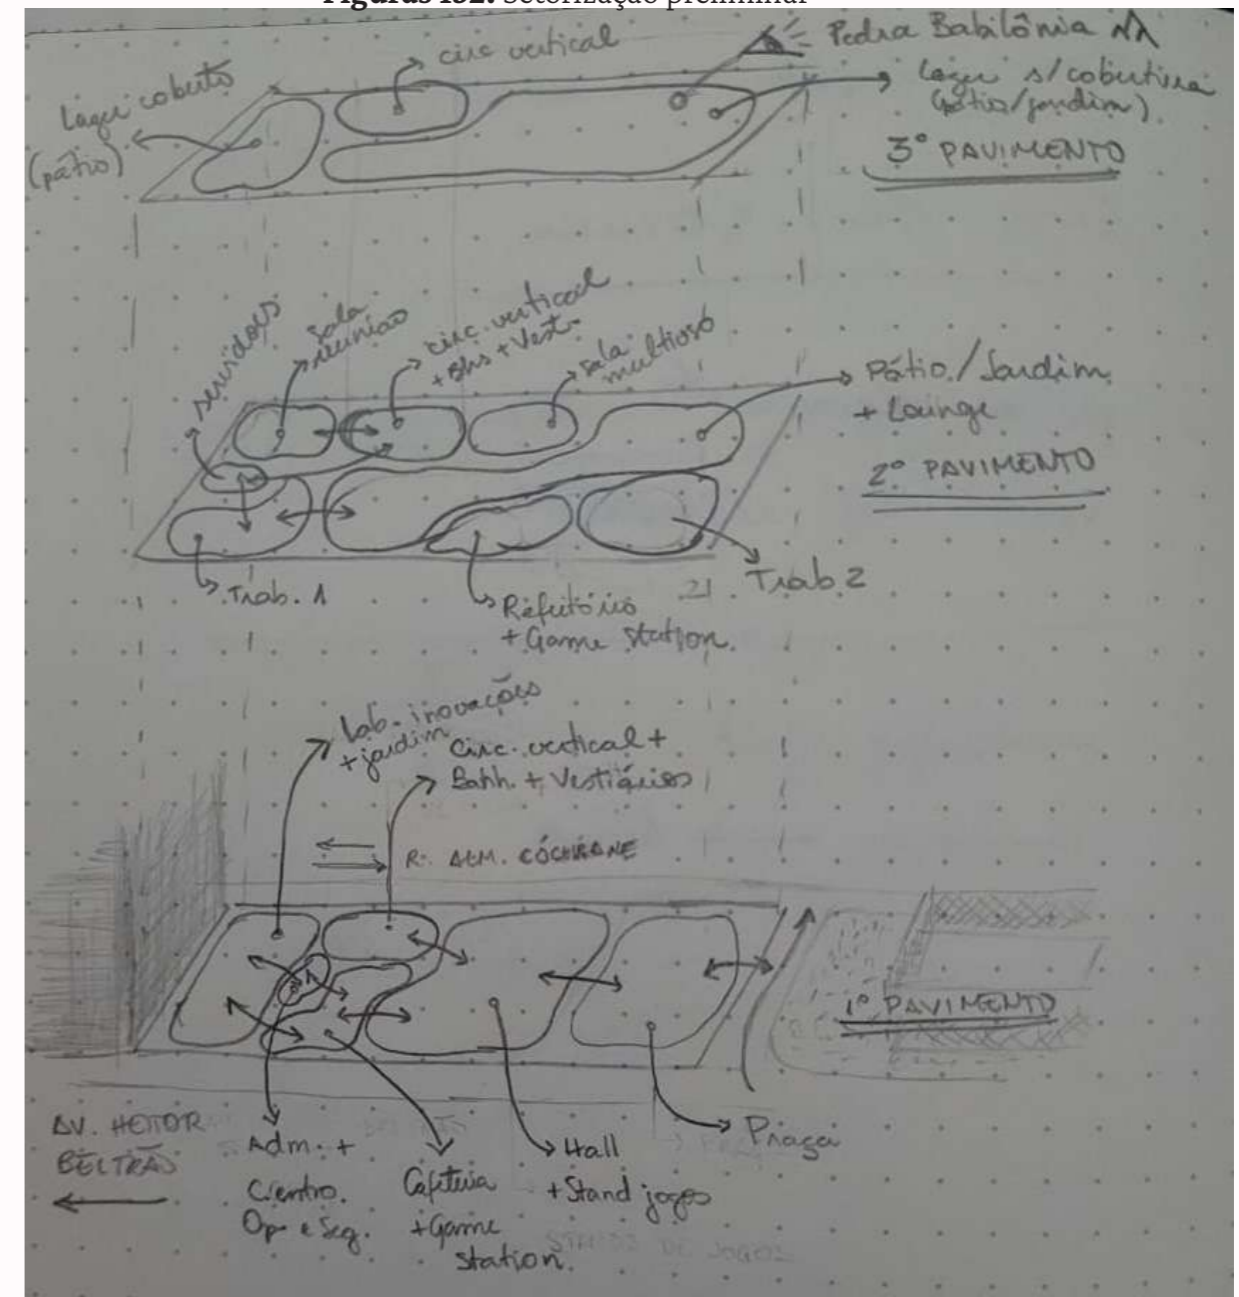 Figuras 132. Setorização preliminar
circ vertical
Pedra Babilônia
Lazer coberto
(pátio)
Lazer s/cobertura
(pátio/jardim)
3º PAVIMENTO
servidores
Sala
reunião
circ. vertical
+ Bhs + Vest.
sala
multiuso
Pátio/Jardim
+ Lounge
2º PAVIMENTO
Trab. 1
Refeitório
+ Game station.
Trab 2
Lab. inovações
+ jardim
Circ. vertical +
Banh. + Vestiários
R. ALM. CÓCHRANE
1º PAVIMENTO
AV. HEITOR
BELTRÃO
Adm. +
Centro.
Op e Seg.
Cafeteria
+ Game
station.
Hall
+ Stand jogos
Praça